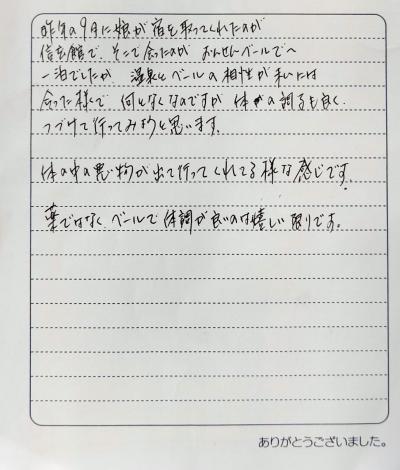 昨年の9月に娘が宿を取ってくれたのが
信玄館で、そこで会ったのが おんせんベールでへ
一泊でしたが 温泉とベールの相性が私には
合った様で 何となくなのですが 体の調子も良く
つづけて行ってみようと思います。
体の中の悪い物が出て行ってくれてる様な感じです。
薬ではなく、ベールで体調が良いのは嬉しい限りです。
ありがとうございました。